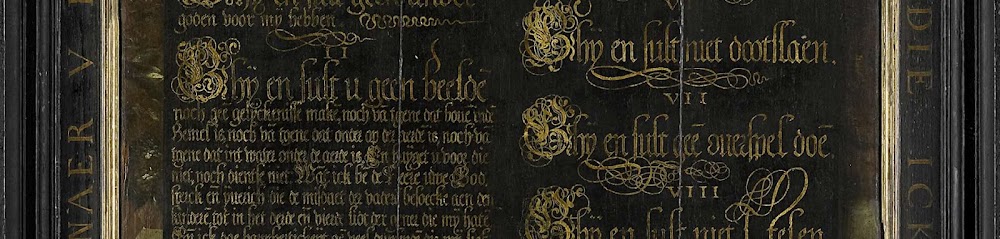 goden voor my hebben.
I
Ghÿ en sult u geen beeldē
noch gee gelyckenisse make, noch vā tgene dat bouē indē
Hemel is, noch vā tgene dat onder op der aerde is, noch vā
tgene dat int water onder de aerde is. En buyget u voor die
niet, noch dientse niet. Wāt ick be de Heere uwe God,
sterck en yuerich die de misdaet der vaderē besoecke aen den
kindere tot in het derde en vierde lidt der gener die my hatē
V
Ghÿ en sult niet dootslaen.
VII
Ghÿ en sult geē overspel doē.
VIII
Ghÿ en sult niet stelen
WAER V
DIE ICK